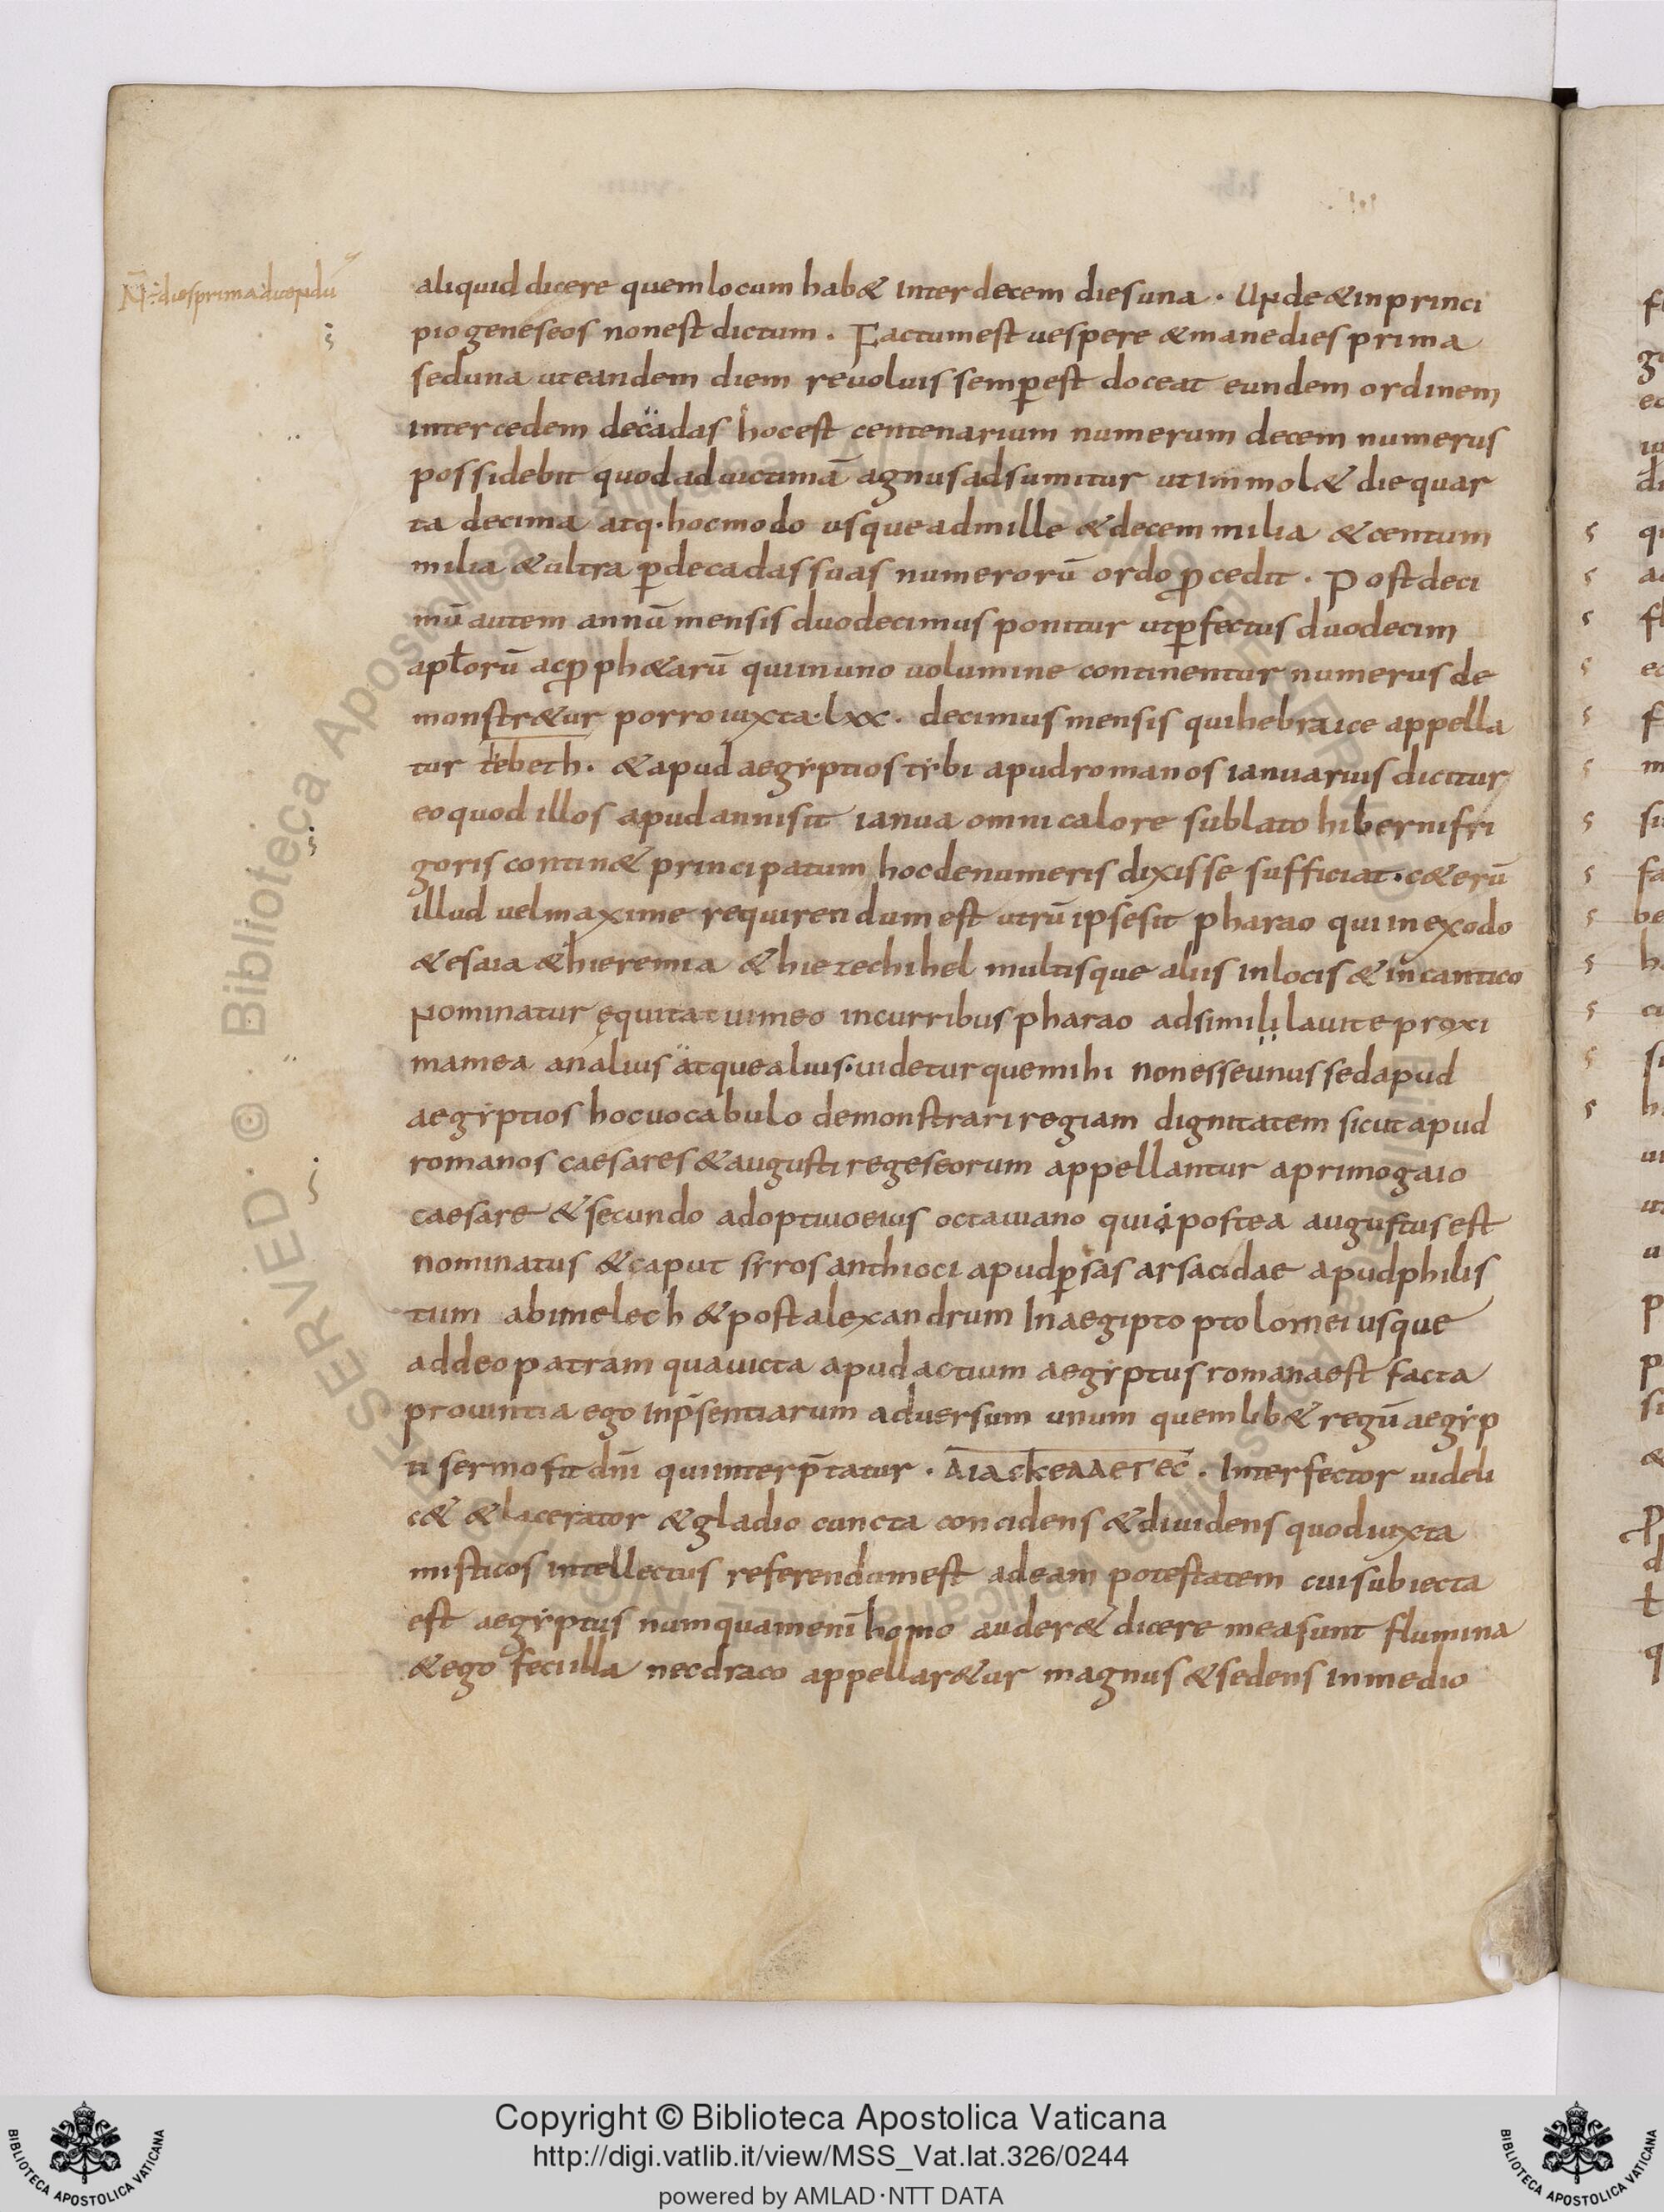 N̄: dies prima dicendū
aliquid dicere quem locum hab& inter decem dies una. Unde & in princi
pio geneseos non est dictum. Factum est uespere & mane dies prima
sed una ut eandem diem reuoluis semꝑ est doceat eundem ordinem
inter cedem decadas hoc est centenarium numerum decem numerus
possidebit quod ad uictimā agnus adsumitur ut immol& die quar
ta decima atq. hoc modo usque ad mille & decem milia & centum
milia & ultra ꝑ decadas suas numerorū ordo ꝓcedit. Post deci
mū autem annū mensis duodecimus ponitur ut ꝑfectus duodecim
aptorū ac ꝓph&arū qui in uno uolumine continentur numerus de
monstr&ur porro iuxta. lxx. decimus mensis qui hebraice appella
tur tebeth. & apud aegyptios tybi apud romanos ianuarius dicitur
eo quod illos apud anni sit ianua omni calore sublato hiberni fri
goris contin& principatum hoc de numeris dixisse sufficiat. c&erū
illud uel maxime requirendum est utrū ipse sit pharao qui in exodo
& esaia & hieremia & hiezechihel multisque aliis in locis & in cantico
nominatur ęquitatui meo in curribus pharao adsimililauite proxi
ma mea an alius atque alius. uideturque mihi non esse unus sed apud
aegyptios hoc uocabulo demonstrari regiam dignitatem sicut apud
romanos caesares & augusti reges eorum appellantur a primo gaio
caesare & secundo adoptiuo eius octauiano qui postea augustus est
nominatus & caput syros anthioci apud ꝑsas arsacidae apud philis
tum abimelech & post alexandrum In aegipto ptolomei usque
ad deopatram qua uicta apud actium aegyptus romana est facta
prouintia ego In p̄sentiarum aduersum unum quemlib& regū aegyp
ti sermo fit dn̄i qui interp̄tatur. AIACKEAAEΓEC. Interfector uideli
c& & lacerator & gladio cuncta concidens & diuidens quod iuxta
misticos intellectus referendum est ad eam potestatem cui subiecta
est aegyptus numquam eni̅ homo auder& dicere mea sunt flumina
& ego feci illa nec draco appellar&ur magnus & sedens in medio
Copyright © Biblioteca Apostolica Vaticana
http://digi.vatlib.it/view/MSS_Vat.lat.326/0244
powered by AMLAD·NTT DATA
BIBLIOTECA APOSTOLICA VATICANA
BIBLIOTECA APOSTOLICA VATICANA